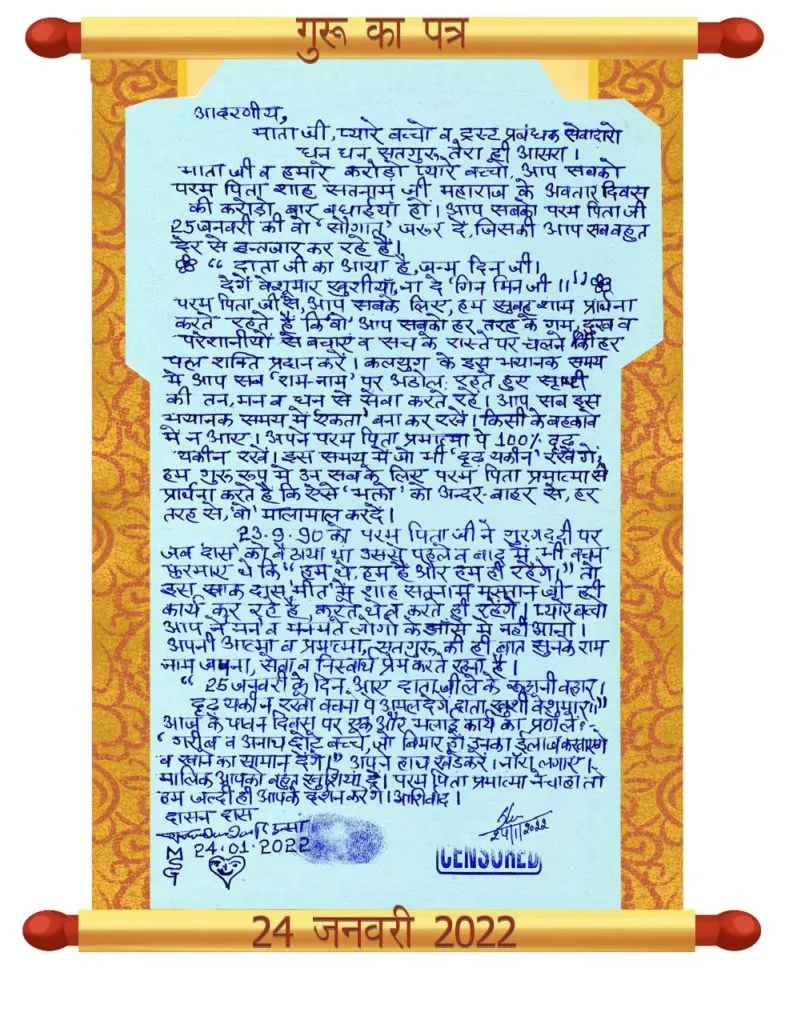 गुरू का पत्र
आदरणीय,
माता जी, प्यारे बच्चो व ट्रस्ट प्रबंधक सेवादारो
धन धन सतगुरू तेरा ही आसरा।
माता जी व हमारे करोड़ो प्यारे बच्चो, आप सबको
परम पिता शाह सतनाम जी महाराज के अवतार दिवस
की करोड़ो बार बधाईयां हो। आप सबको परम पिता जी
25 जनवरी की वो 'सौगात' जरूर दें, जिसकी आप सब बहुत
देर से इन्तजार कर रहे हैं।
“ दाता जी का आया है, जन्म दिन जी।
देगें बेशुमार खुशीयां, ना दे 'गिन मिन जी ॥"
परम पिता जी से, आप सबके लिए, हम सुबह शाम प्रार्थना
करते रहते हैं कि 'वो' आप सबको हर तरह के गम, दुख व
परेशानीयों से बचाए व सच के रास्ते पर चलने की हर
पल शक्ति प्रदान करें। कलयुग के इस भयानक समय
में आप सब 'राम-नाम' पर अडोल रहते हुए सृष्टी
की तन, मन व धन से सेवा करते रहें। आप सब इस
भयानक समय में 'एकता' बना कर रखें। किसी के बहकावे
में न आए। अपने परम पिता प्रमात्मा पे 100% दृढ़
यकीन रखें। इस समय में जो भी 'दृढ़ यकीन' रखेंगे,
हम गुरू रूप में उन सब के लिए परम पिता प्रमात्मा से
प्रार्थना करते हैं कि ऐसे 'भक्तो' को अन्दर-बाहर से, हर
तरह से, 'वो' मालामाल करदें।
23.9.90 को परम पिता जी ने गुरगद्दी पर
जब 'दास' को बैठाया था उससे पहले व बाद में भी वचन
फुरमाए थे कि “हम थे, हम हैं और हम ही रहेंगे।” तो
इस खाक दास, 'मीत' में शाह सतनाम, मस्तान जी ही
कार्य कर रहे हैं, करते थे व करते ही रहेंगे। प्यारे बच्चो
आप ने मन व मनमते लोगो के झाँसे में नहीं आना।
अपनी आत्मा व प्रमात्मा, सतगुरू की ही बात सुनके राम
नाम जपना, सेवा व निस्वार्थ प्रेम करते रहना है।
“ 25 जनवरी के दिन आए दाता जी ले के रूहानी बहार।
दृढ़ यकीन रखो वचनो पे अमल देंगे दाता खुशी बेशुमार॥”
आज के पावन दिवस पर एक और भलाई कार्य का प्रण लें:-
“ गरीब व अनाथ छोटे बच्चे, जो बिमार हों, उनका ईलाज करवाएंगे
व खाने का सामान देंगे।” आपने हाथ खड़े करें। नॉरा लगाए।
मालिक आपको बहुत खुशियां दे। परम पिता प्रमात्मा ने चाहा तो
हम जल्दी ही आपके दर्शन करेंगे। आशिर्वाद।
दासन दास
24.01.2022
MSG
24/1/2022
CENSORED
24 जनवरी 2022